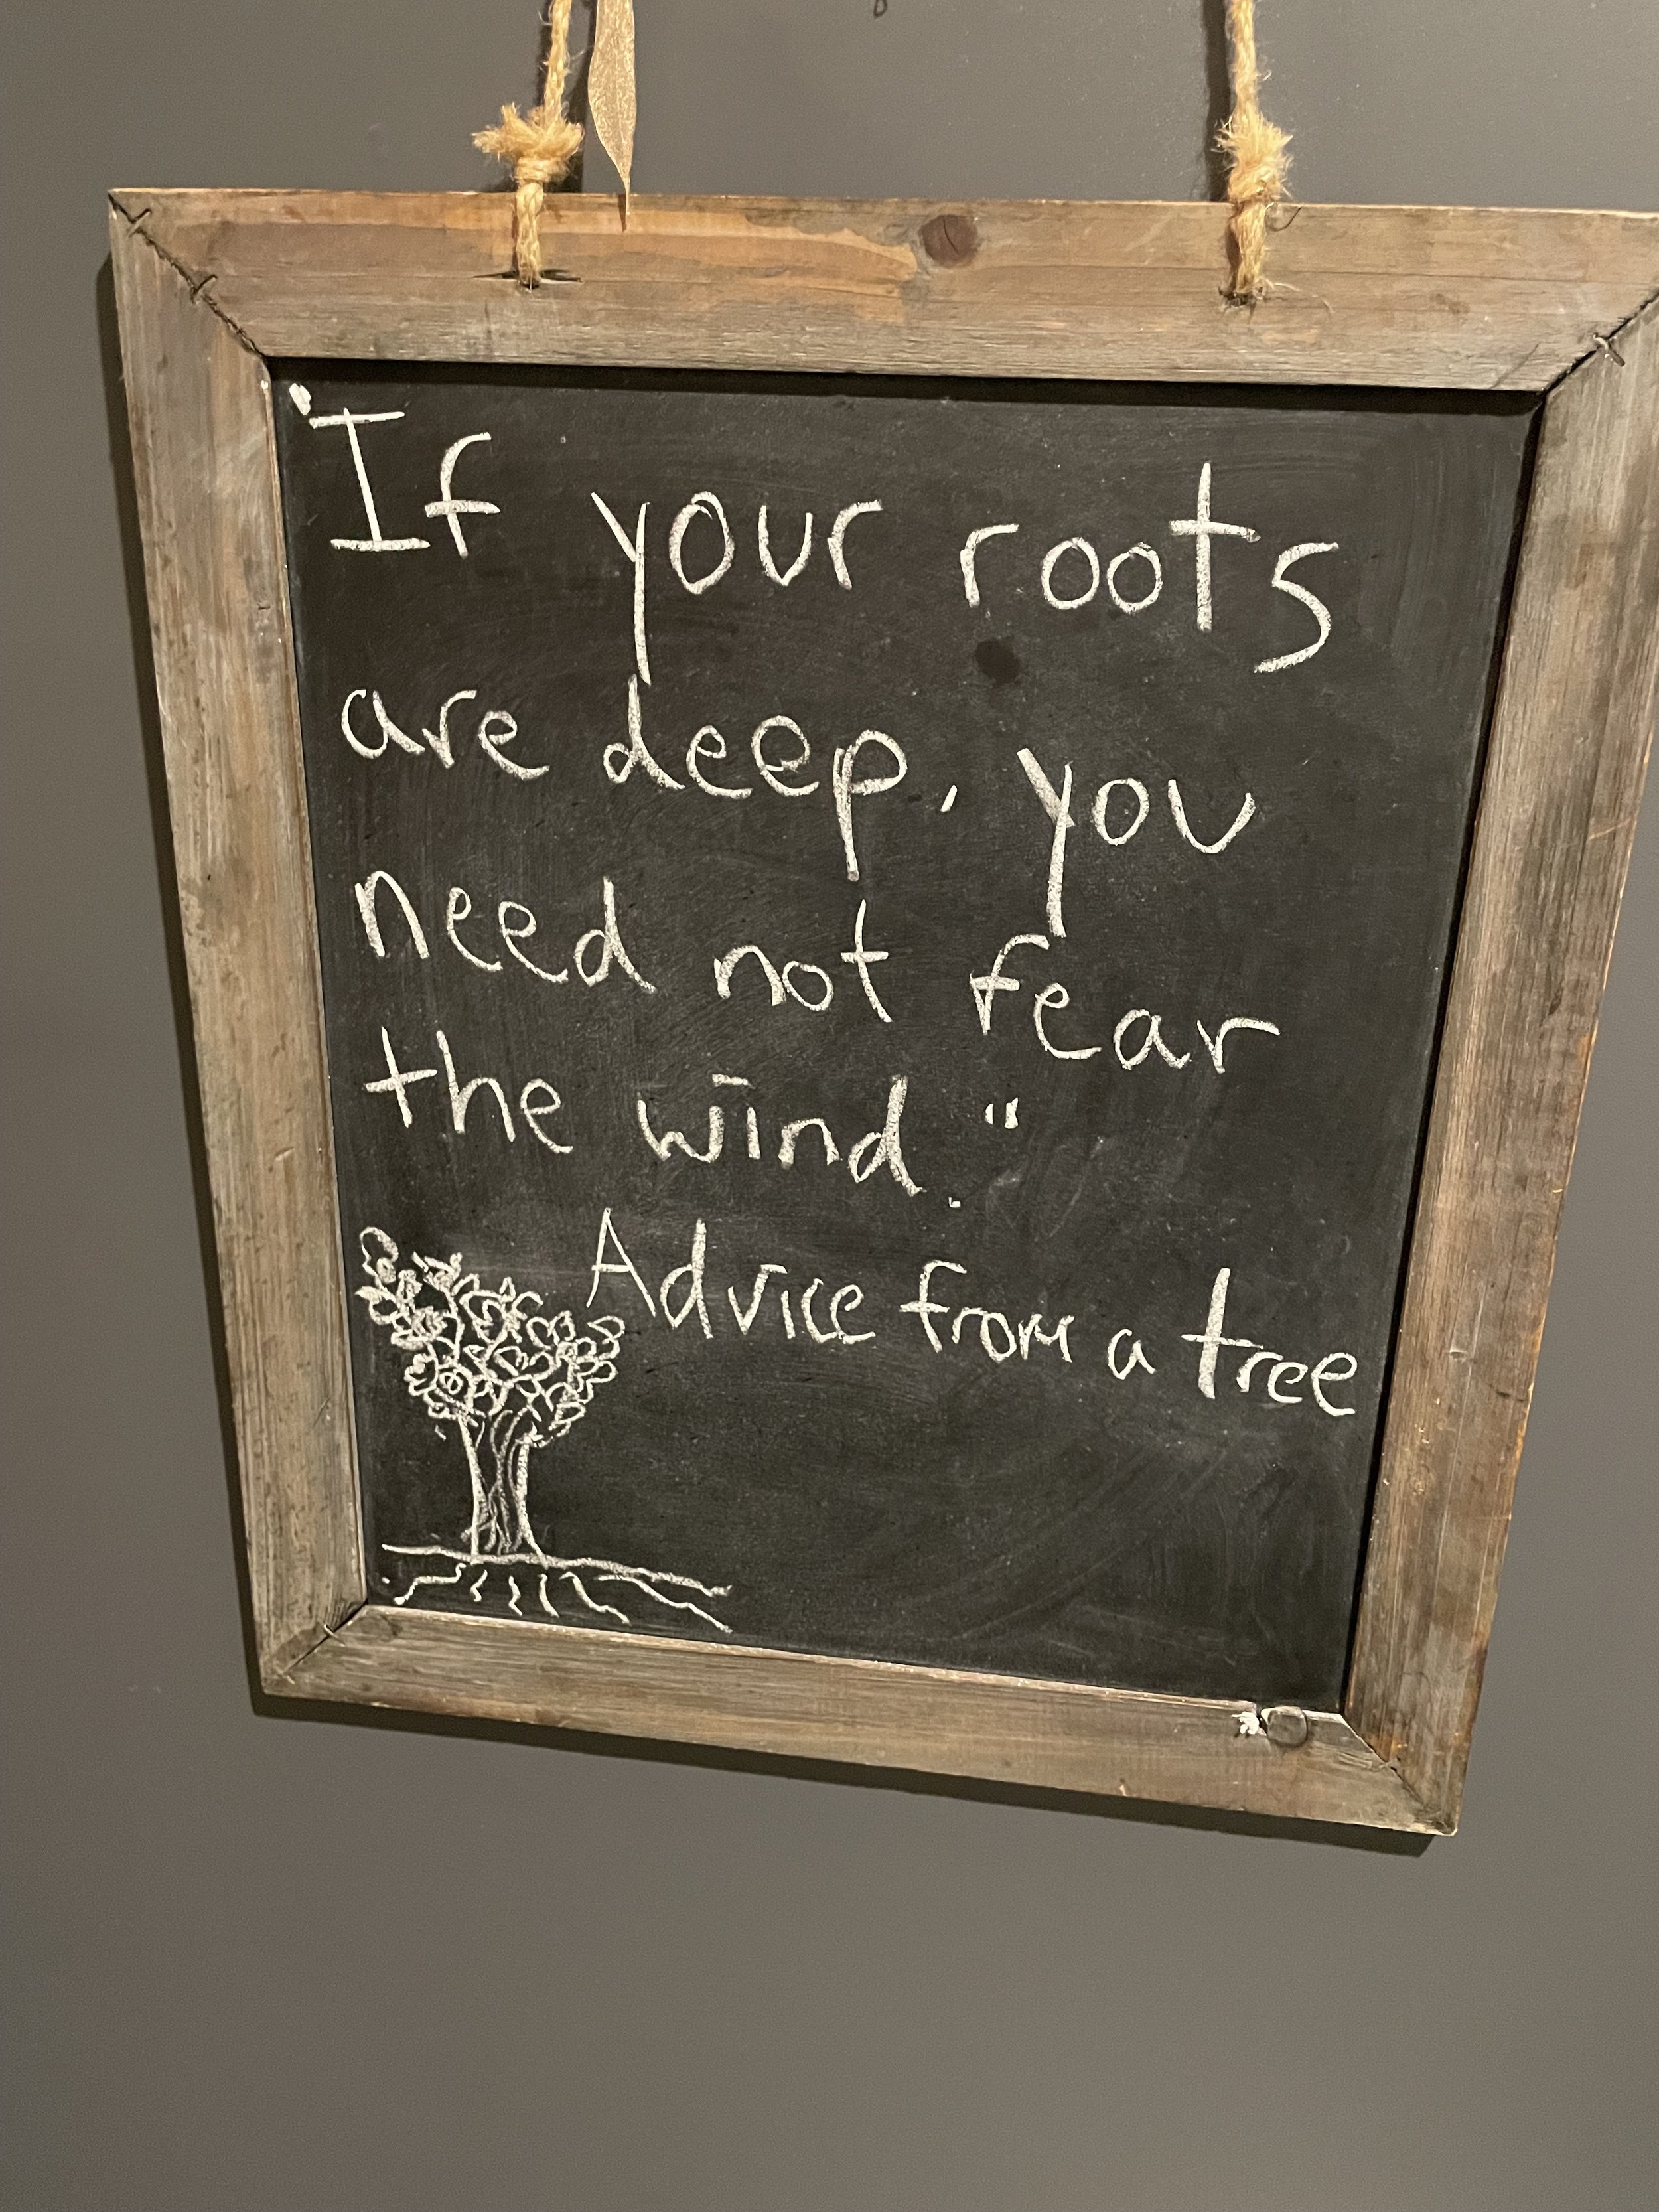 "If your roots
are deep, you
need not fear
the wind."
Advice from a tree